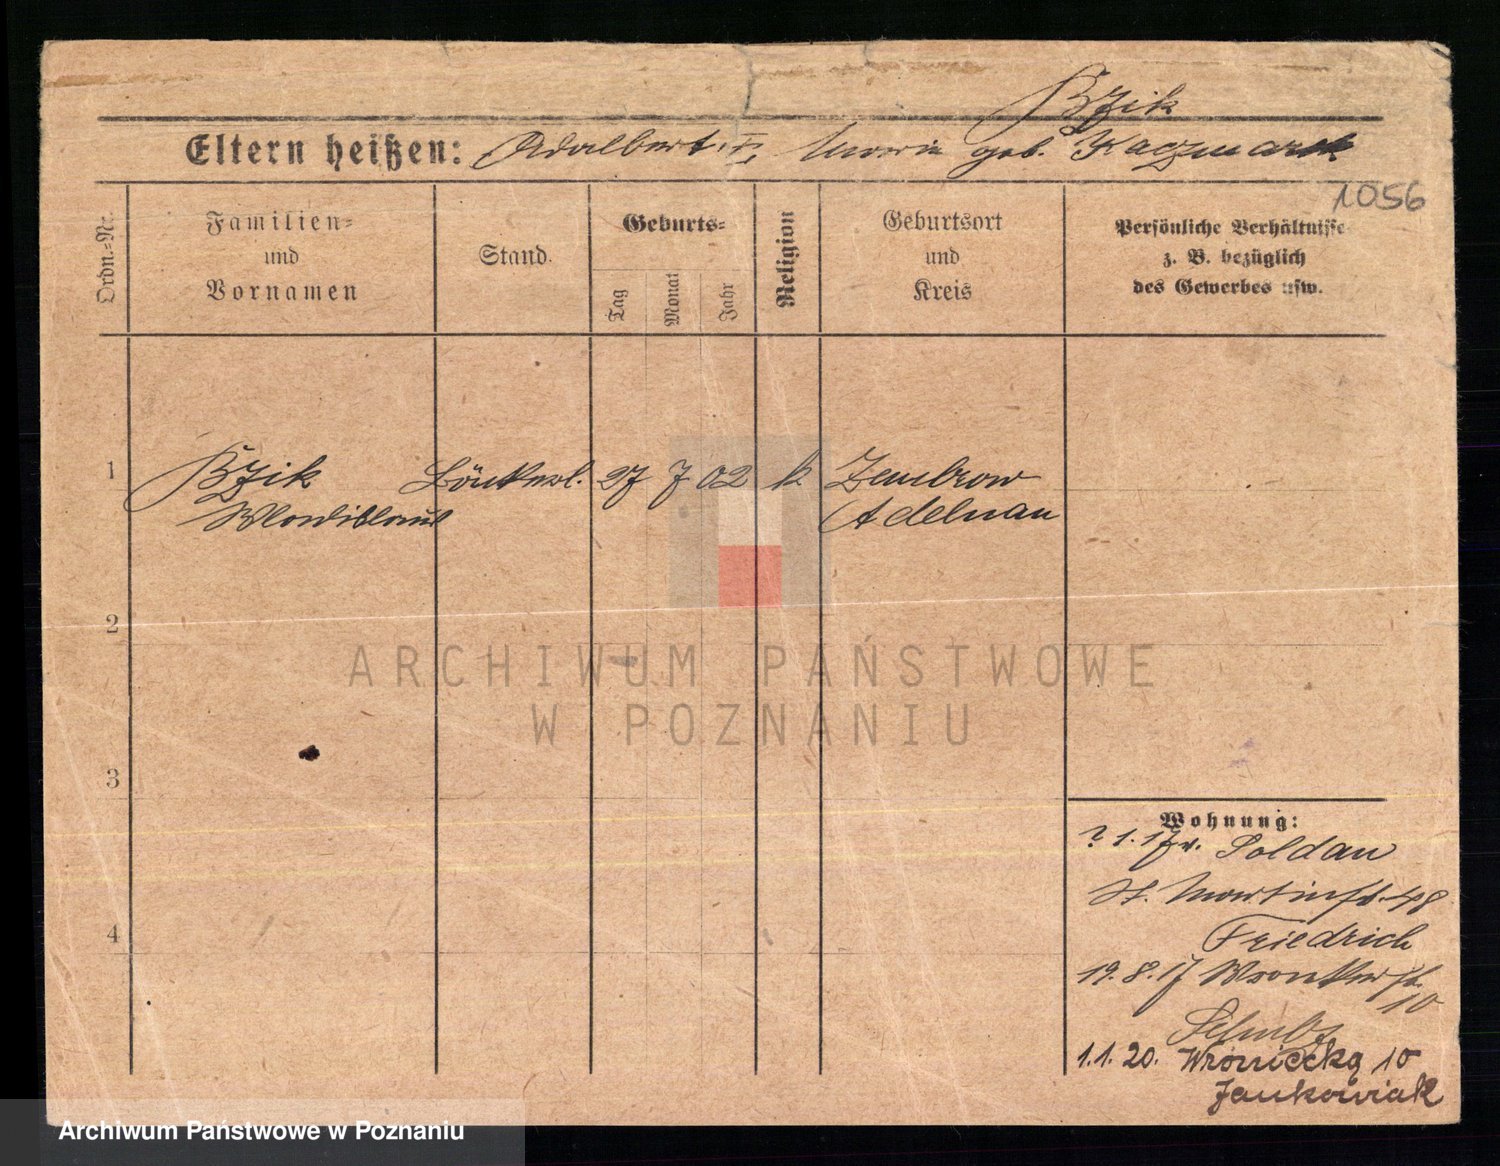 Bzik
Eltern heißen: Adalbert u. Maria geb. Kaczmarek
1056
Ordn.-Nr.
Familien-
und
Vornamen
Stand.
Geburts-
Tag
Monat
Jahr
Religion
Geburtsort
und
Kreis
Persönliche Verhältnisse
z. B. bezüglich
des Gewerbes usw.
1
Bzik 27 7 02 k
Wladislaus Adelnau
2
ARCHIWUM PAŃSTWOWE
W POZNANIU
3
Wohnung:
1.17 v. Soldau
St. Martinstr. 48
Friedrich
19.8.17 Wronkerstr.
10
Schulz
1.1.20. Wroniecka 10
Jankowiak
4
Archiwum Państwowe w Poznaniu